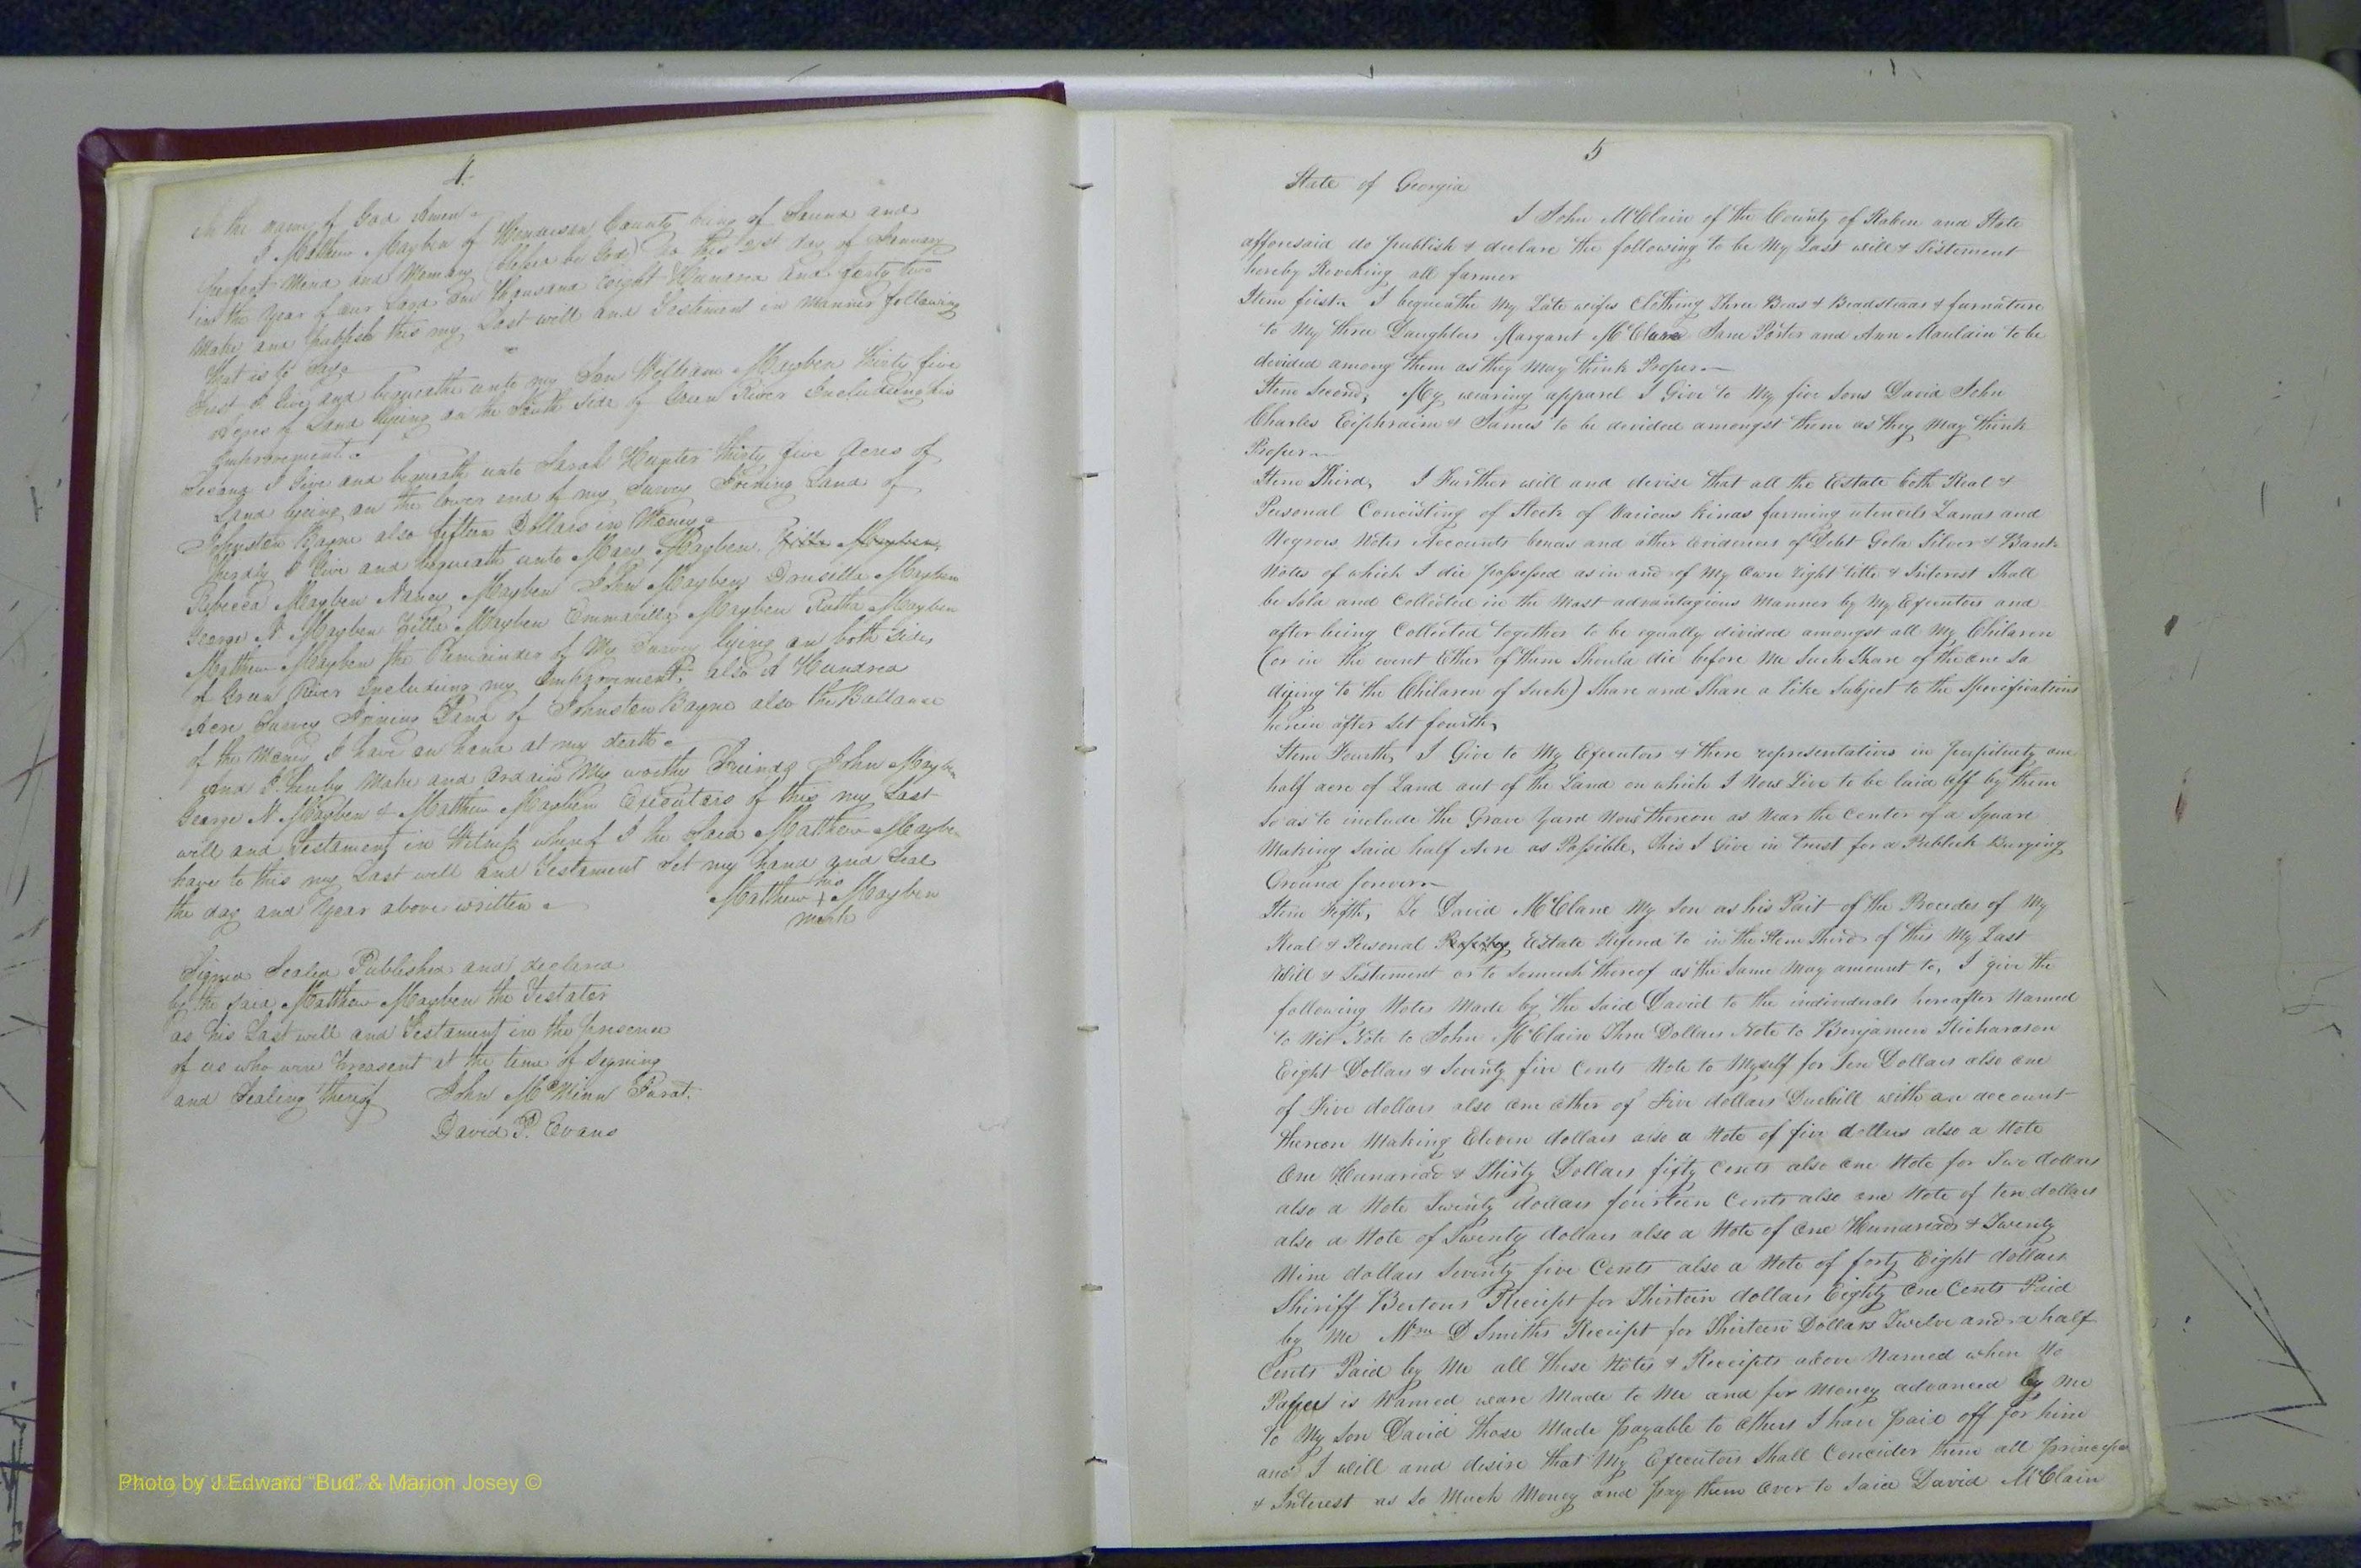 4.
In the name of God Amen
I Matthew Mayben of Henderson County being of Sound and
perfect Mind and Memory (blessed be God) do this 21st day of January
in the Year of our Lord one thousand Eight Hundred and forty two
Make and publish this my Last will and Testament in Manner following
that is to Say
First I Give and bequeathe unto my Son William Mayben thirty five
Acres of Land lying on the South Side of Green River Including his
Improvement
Second I Give and bequeath unto Sarah Hunter thirty five Acres of
Land lying on the lower end of my Survey Joining Land of
Johnston Bayne also fifteen Dollars in Money
Therdly I Give and bequeath unto Mary Mayben Zilla Mayben
Rebecca Mayben Nancy Mayben John Mayben Drusilla Mayben
George N. Mayben Zilla Mayben Emmarilla Mayben Rutha Mayben
Matthew Mayben the Remainder of My Survey lying on both Sides
of Green River Including my Improvement, also A Hundred
Acre Survey Joining Land of Johnston Bayne also the Ballance
of the Money I have on hand at my death
And I Hereby Make and Ordain My worthy Friends John Mayben
George N. Mayben & Matthew Mayben Executors of this my Last
will and Testament in Witness whereof I the Said Matthew Mayben
have to this my Last will and Testament Set my hand and Seal
the day and Year above written
his
Matthew + Mayben
mark
Signed Sealed Published and declared
by the Said Matthew Mayben the Testator
as his Last will and Testament in the presence
of us who were Preasent at the time of Signing
and Sealing thereof John McMinn Jurat.
David P. Evans
5
State of Georgia
I John McClain of the County of Raben and State
afforesaid do publish & declare the following to be My Last will & Testement
hereby Revoking all farmer
Item first I bequeathe My Late wifes Clothing Three Beds & Beadsteads & furnature
to My three Daughters Margaret McClure Jane Porter and Ann Mauldin to be
devided among them as they May think Proper
Item Second, My wearing apparel I Give to My five Sons David John
Charles Eiphraim & James to be devided amongst them as they May think
Proper
Item Third, I Further will and devise that all the Estate both Real &
Personal Concisting of Stock of Various Kinds farming utencils Lands and
Negroes Notes Accounts bonds and other Evidences of Debt Gold Silver & Bank
Notes of which I die possessed as in and of My Own right title & Interest Shall
be Sold and Collected in the Most advantagious Manner by My Executors and
after being Collected together to be equally divided amongst all My Children
(or in the event Either of them Should die before Me Such Share of the one So
dying to the Children of Such) Share and Share a like Subject to the Specifications
herein after Set fourth,
Item Fourth, I Give to My Executors & there representatives in Perpituety one
half acre of Land out of the Land on which I Now Live to be laid Off by them
So as to include the Grave Yard Now thereon as Near the Center of a Square
Making Said half Acre as Possible, this I Give in trust for a Publick Burying
Ground forever
Item Fifth, To David McClane My Son as his Part of the Procedes of My
Real & Personal Property Estate Refered to in the Item Third of this My Last
Will & Testement or to Somuch thereof as the Same May amount to, I give the
following Notes Made by the Said David to the individuals hereafter Named
to Wit Note to John McClain Three Dollars Note to Benjamin Richardson
Eight Dollars & Seventy five Cents Note to Myself for Ten Dollars also one
of Five dollars also one other of Five dollars Duebill with an account
thereon Making Eleven dollars also a Note of five dollars also a Note
One Hundried & Thirty Dollars fifty Cents also one Note for Two dollars
also a Note Twenty dollars fourteen Cents also one Note of ten dollars
also a Note of Twenty dollars also a Note of One Hundried & Twenty
Nine dollars Seventy five Cents also a Note of forty Eight dollars
Shiriff Beetons Receipt for Thirteen dollars Eighty One Cents Paid
by Me Wm D Smiths Receipt for Thirteen Dollars Twelve and a half
Cents Paid by Me all these Notes & Receipts above Named when No
Payee is Named ware Made to Me and for Money advanced by Me
to My Son David those Made payable to Others I have paid off for him
and I will and desire that My Executors Shall Concider them all principal
& Interest as So Much Money and pay them Over to Said David McClain
Photo by J.Edward "Bud" & Marion Josey ©